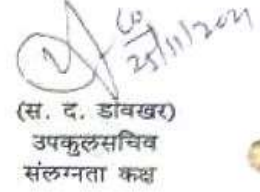 25/11/2021
(स. द. डांवखर)
उपकुलसचिव
संलग्नता कक्ष